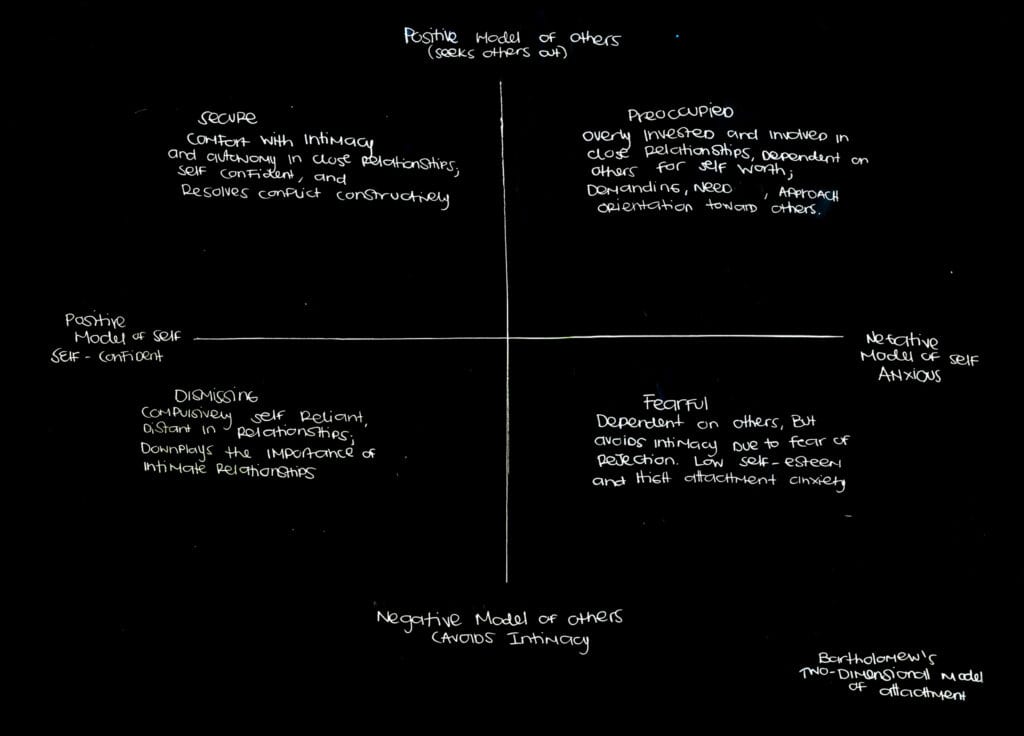 Positive Model of others
(seeks others out)
Secure
Comfort with Intimacy
and autonomy in close relationships,
self confident, and
Resolves conflict constructively
Preoccupied
overly invested and involved in
close relationships, dependent on
others for self worth;
Demanding, need , approach
orientation toward others.
Positive
Model of self
Self-confident
Negative
Model of self
Anxious
Dismissing
Compulsively self reliant,
distant in relationships;
Downplays the importance of
Intimate relationships
Fearful
Dependent on others, but
avoids intimacy due to fear of
rejection. Low self-esteem
and high attachment anxiety
Negative Model of others
(Avoids Intimacy
Bartholomew's
Two-Dimensional Model
of attachment